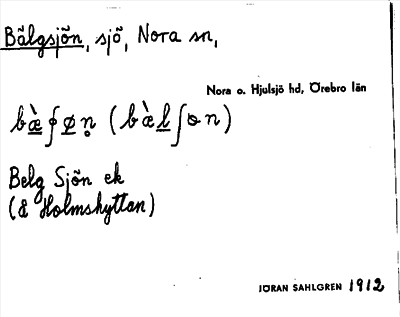 Bälgsjön, sjö, Nora sn,
Nora o. Hjulsjö hd, Örebro län
Belg Sjön ek
(& Holmshyttan)
JÖRAN SAHLGREN 1912